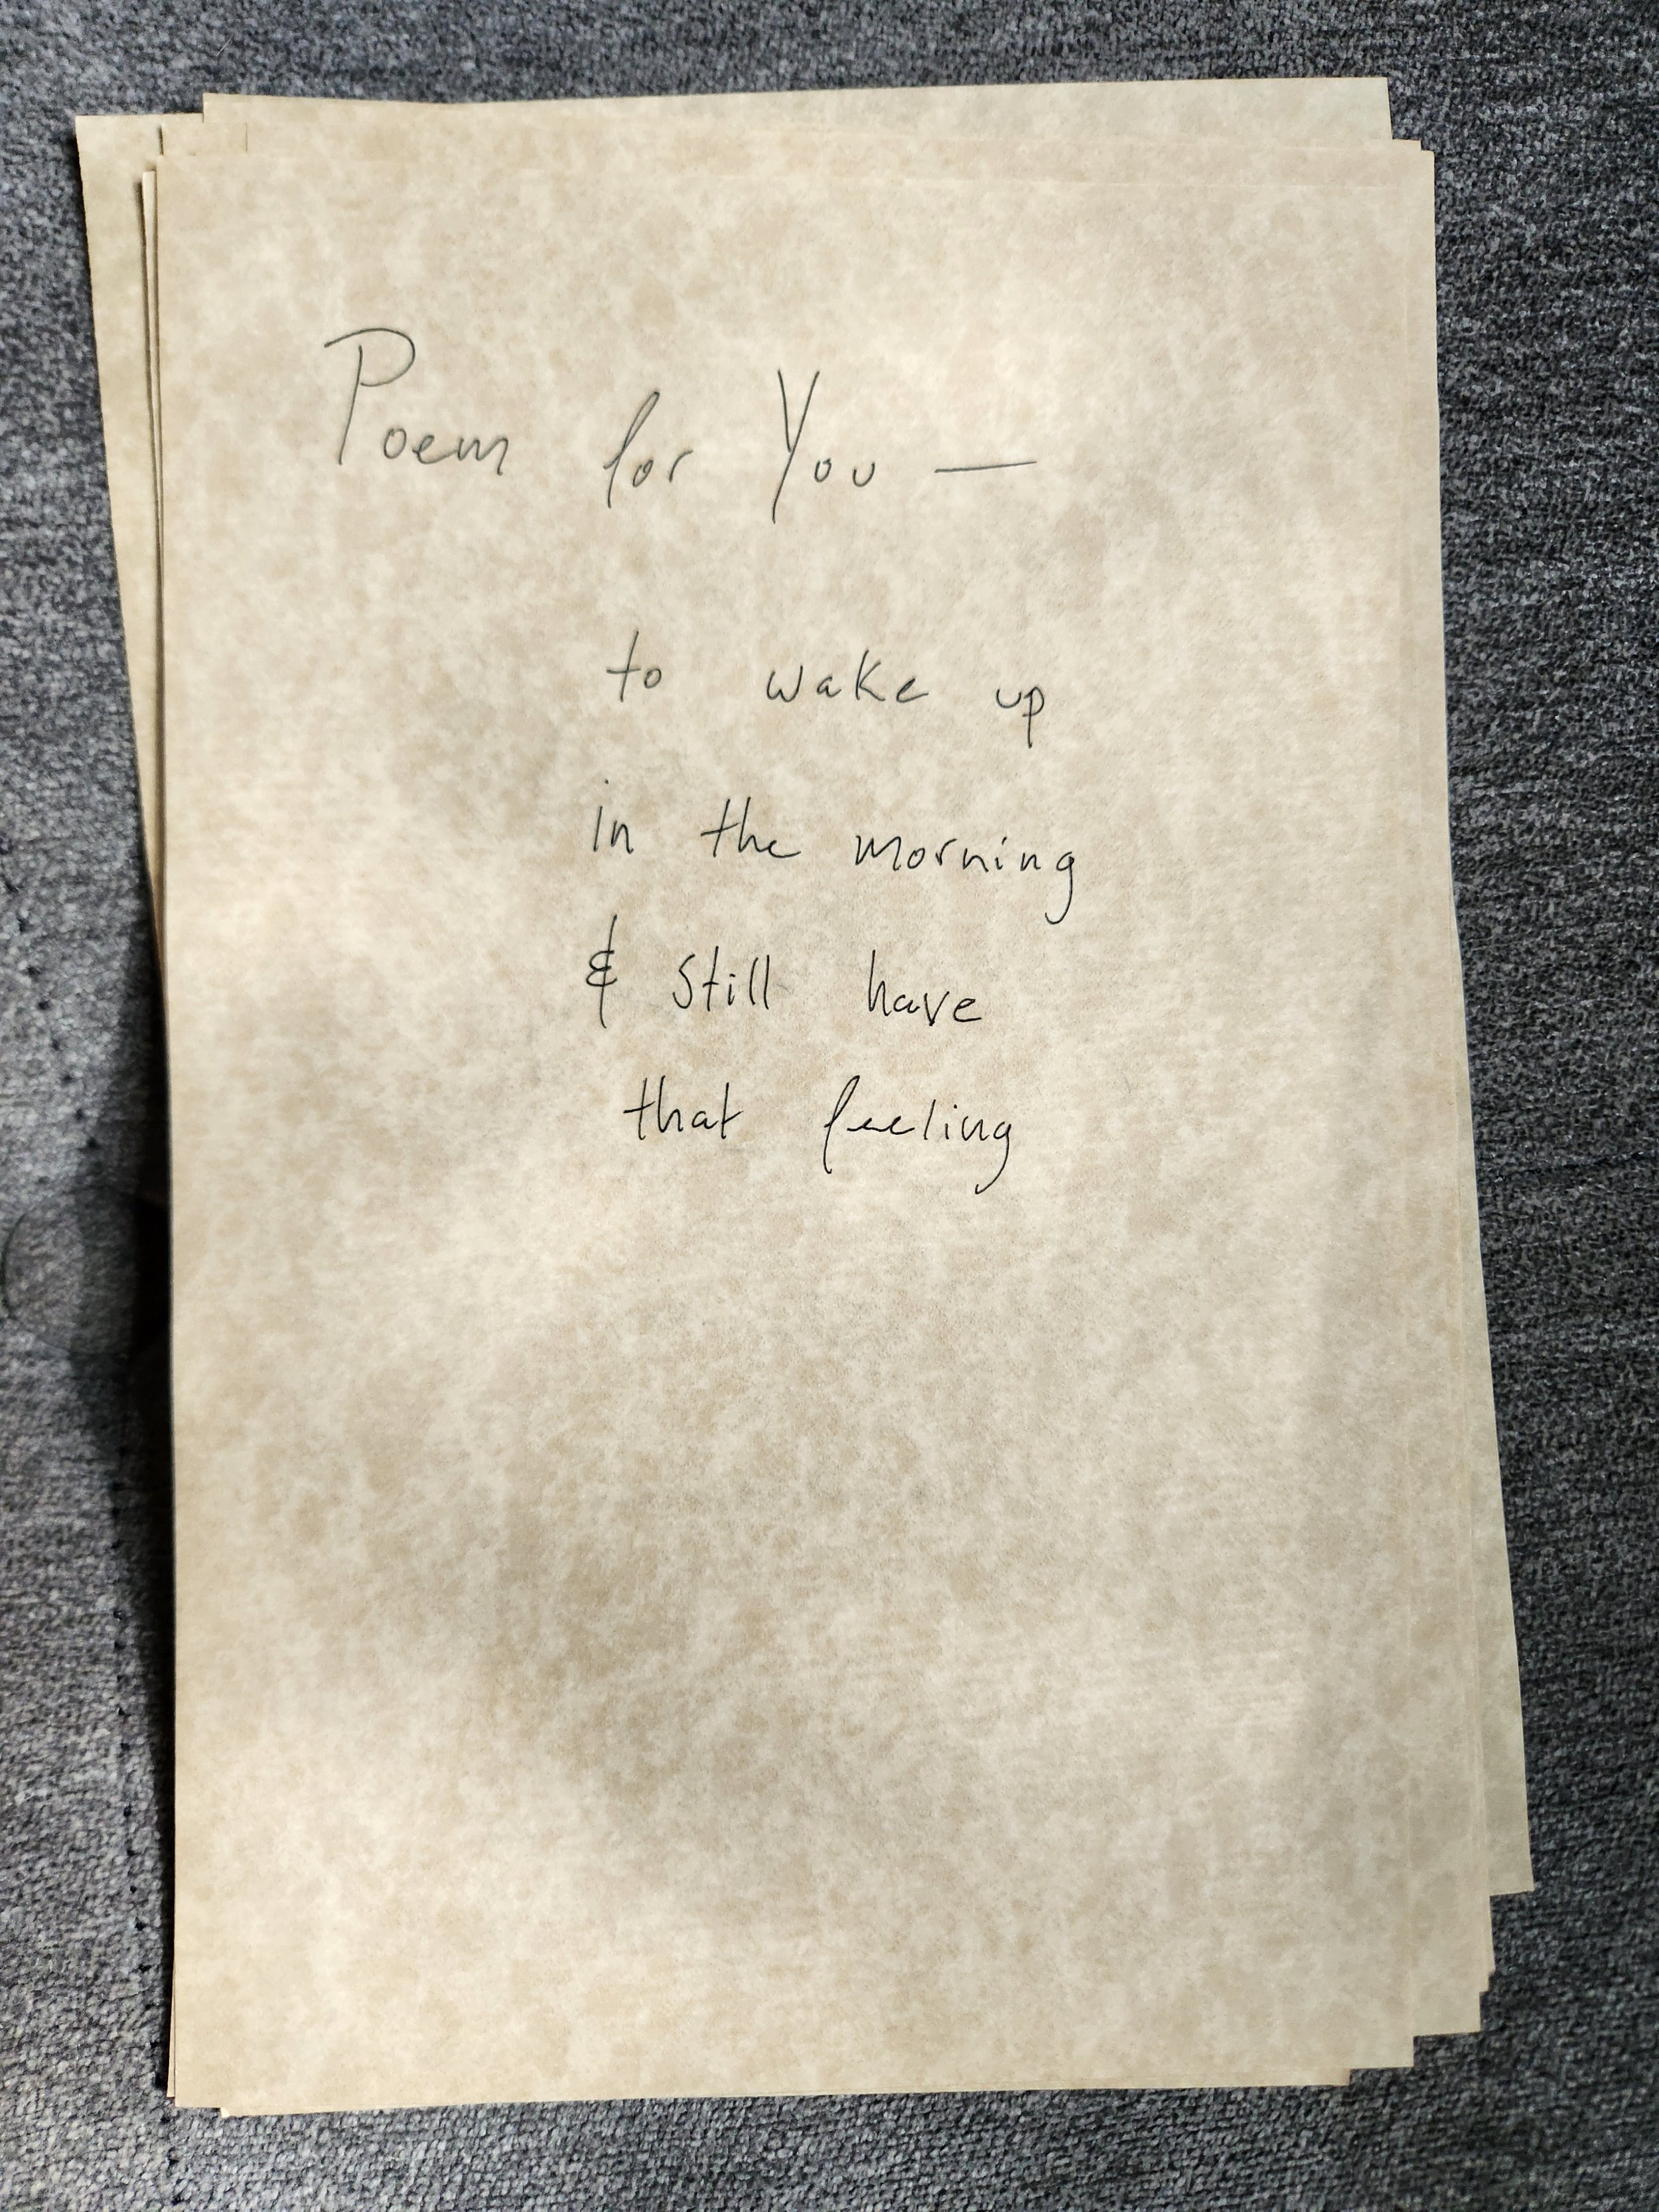 Poem for You —
to wake up
in the morning
& still have
that feeling